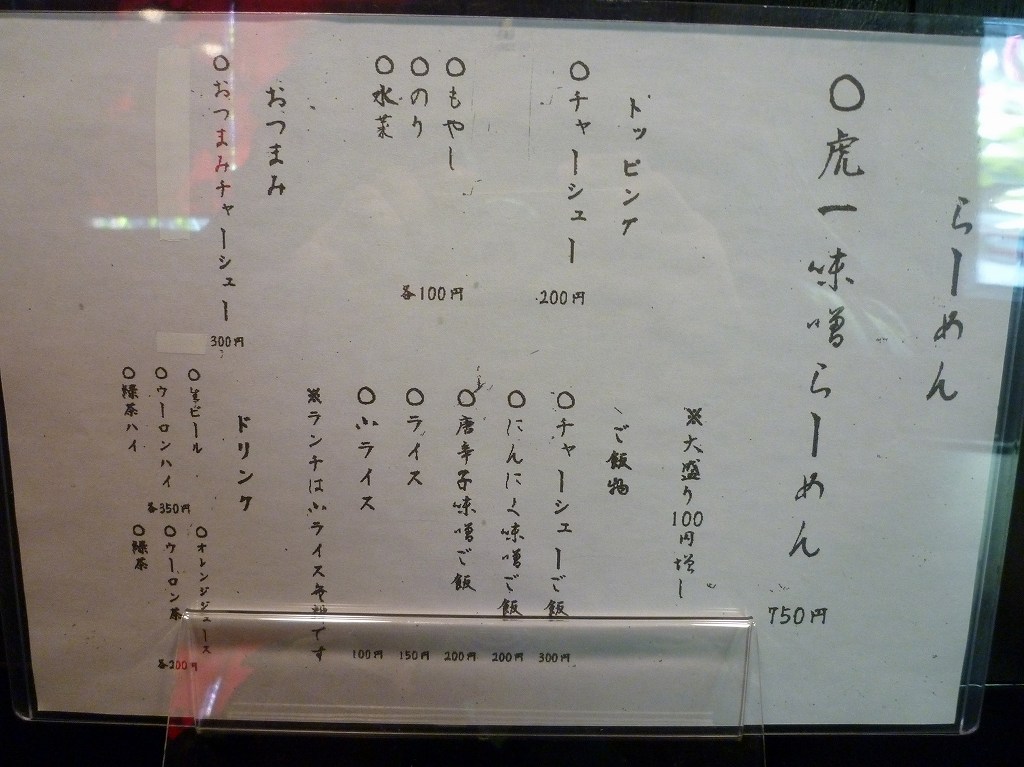 らーめん
○虎一味噌らーめん 750円
※大盛り100円増し
トッピング
○チャーシュー 200円
○もやし
○のり
○水菜
各100円
ご飯物
○チャーシューご飯 300円
○にんにく味噌ご飯 200円
○唐辛子味噌ご飯 200円
○ライス 150円
○小ライス 100円
※ランチは小ライス無料です
おつまみ
○おつまみチャーシュー 300円
ドリンク
○生ビール
○ウーロンハイ
○緑茶ハイ
各350円
○オレンジジュース
○ウーロン茶
○緑茶
各200円